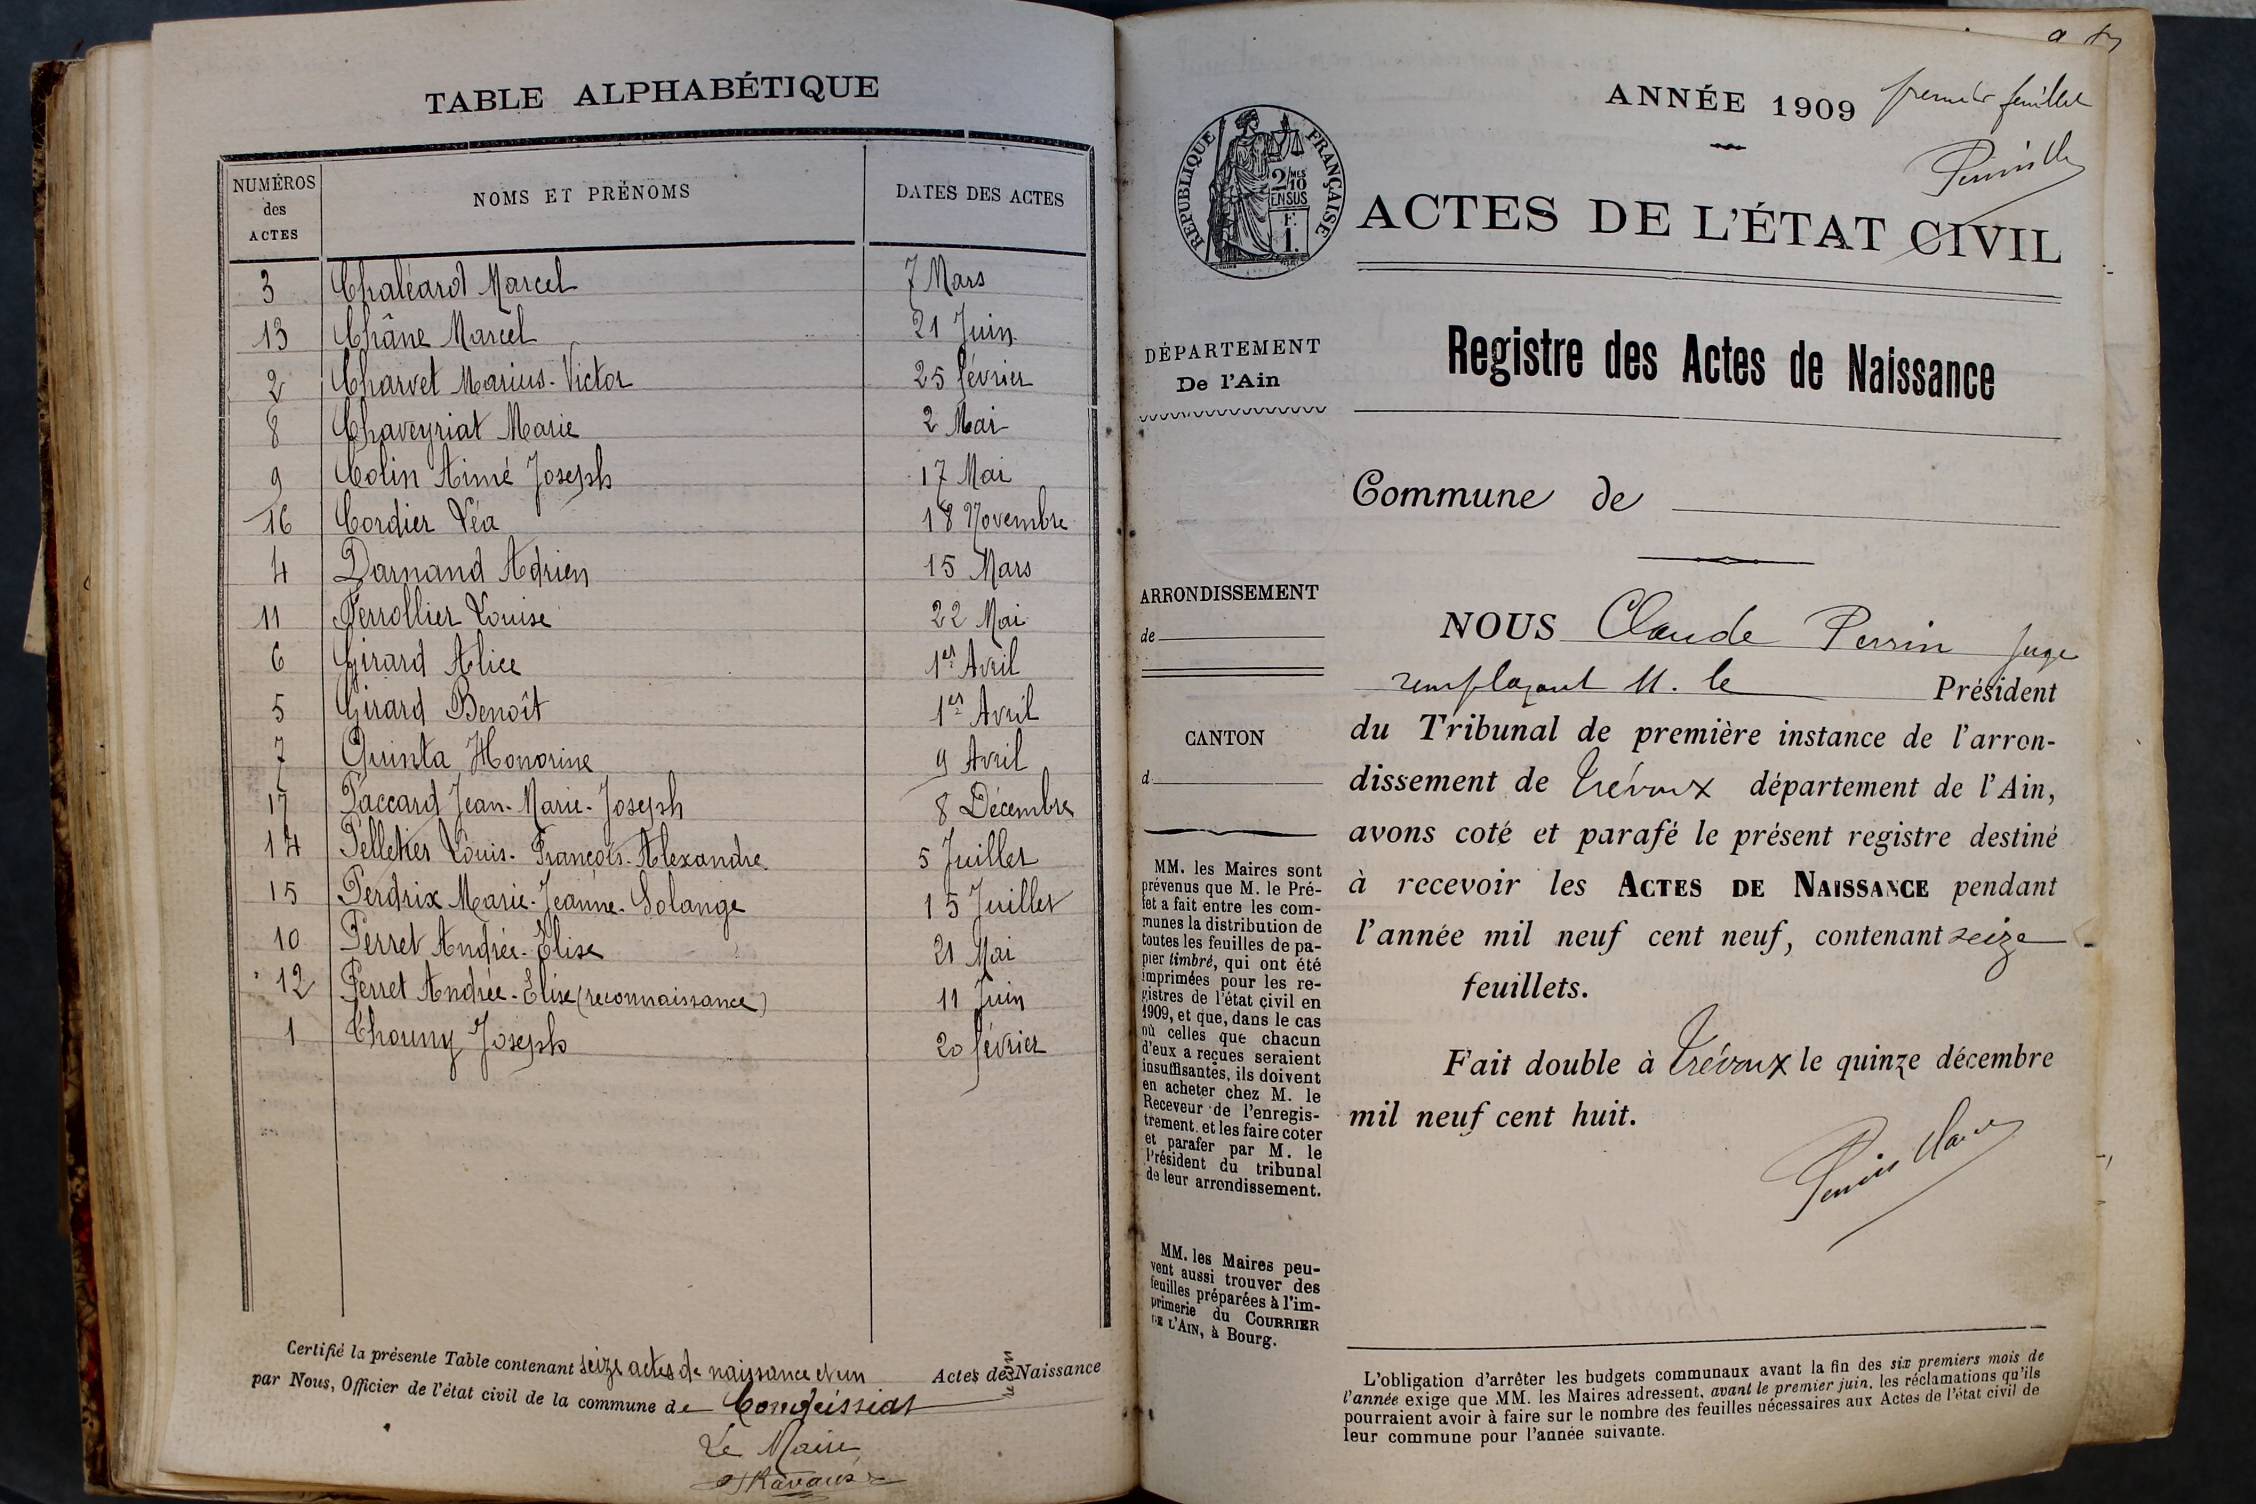 TABLE ALPHABÉTIQUE
NUMÉROS des ACTES NOMS ET PRÉNOMS DATES DES ACTES
3 Chaléard Marcel 7 Mars
13 Châne Marcel 21 Juin
2 Charvet Marius-Victor 25 février
8 Chaveyriat Marie 2 Mai
9 Colin Aimé Joseph 17 Mai
16 Cordier Léa 18 Novembre
4 Darnand Adrien 15 Mars
11 Ferrollier Louise 22 Mai
6 Girard Alice 1er Avril
5 Girard Benoît 1er Avril
7 Guinta Honorine 9 Avril
17 Paccard Jean-Marie-Joseph 8 Décembre
14 Pelletier Louis-François-Alexandre 5 Juillet
15 Perdrix Marie-Jeanne-Solange 15 Juillet
10 Perret Andrée-Elise 21 Mai
12 Perret Andrée-Elise (reconnaissance) 11 Juin
1 Thouny Joseph 20 février
Certifié la présente Table contenant seize actes de naissance et un Actes de Naissance
par Nous, Officier de l'état civil de la commune de Condeissiat
Le Maire
ANNÉE 1909 premier feuillet
RÉPUBLIQUE FRANÇAISE
2/10 MES
EN SUS
F.
1.
ACTES DE L'ÉTAT CIVIL
Registre des Actes de Naissance
DÉPARTEMENT
De l'Ain
Commune de
ARRONDISSEMENT
de
CANTON
d
MM. les Maires sont
prévenus que M. le Pré-
fet a fait entre les com-
munes la distribution de
toutes les feuilles de pa-
pier timbré, qui ont été
imprimées pour les re-
gistres de l'état civil en
1909, et que, dans le cas
où celles que chacun
d'eux a reçues seraient
insuffisantes, ils doivent
en acheter chez M. le
Receveur de l'enregis-
trement, et les faire coter
et parafer par M. le
Président du tribunal
de leur arrondissement.
MM. les Maires peu-
vent aussi trouver des
feuilles préparées à l'im-
primerie du COURRIER
DE L'AIN, à Bourg.
NOUS Claude Perrin Juge
remplaçant M. le Président
du Tribunal de première instance de l'arron-
dissement de Trévoux département de l'Ain,
avons coté et parafé le présent registre destiné
à recevoir les ACTES DE NAISSANCE pendant
l'année mil neuf cent neuf, contenant seize
feuillets.
Fait double à Trévoux le quinze décembre
mil neuf cent huit.
L'obligation d'arrêter les budgets communaux avant la fin des six premiers mois de
l'année exige que MM. les Maires adressent, avant le premier juin, les réclamations qu'ils
pourraient avoir à faire sur le nombre des feuilles nécessaires aux Actes de l'état civil de
leur commune pour l'année suivante.